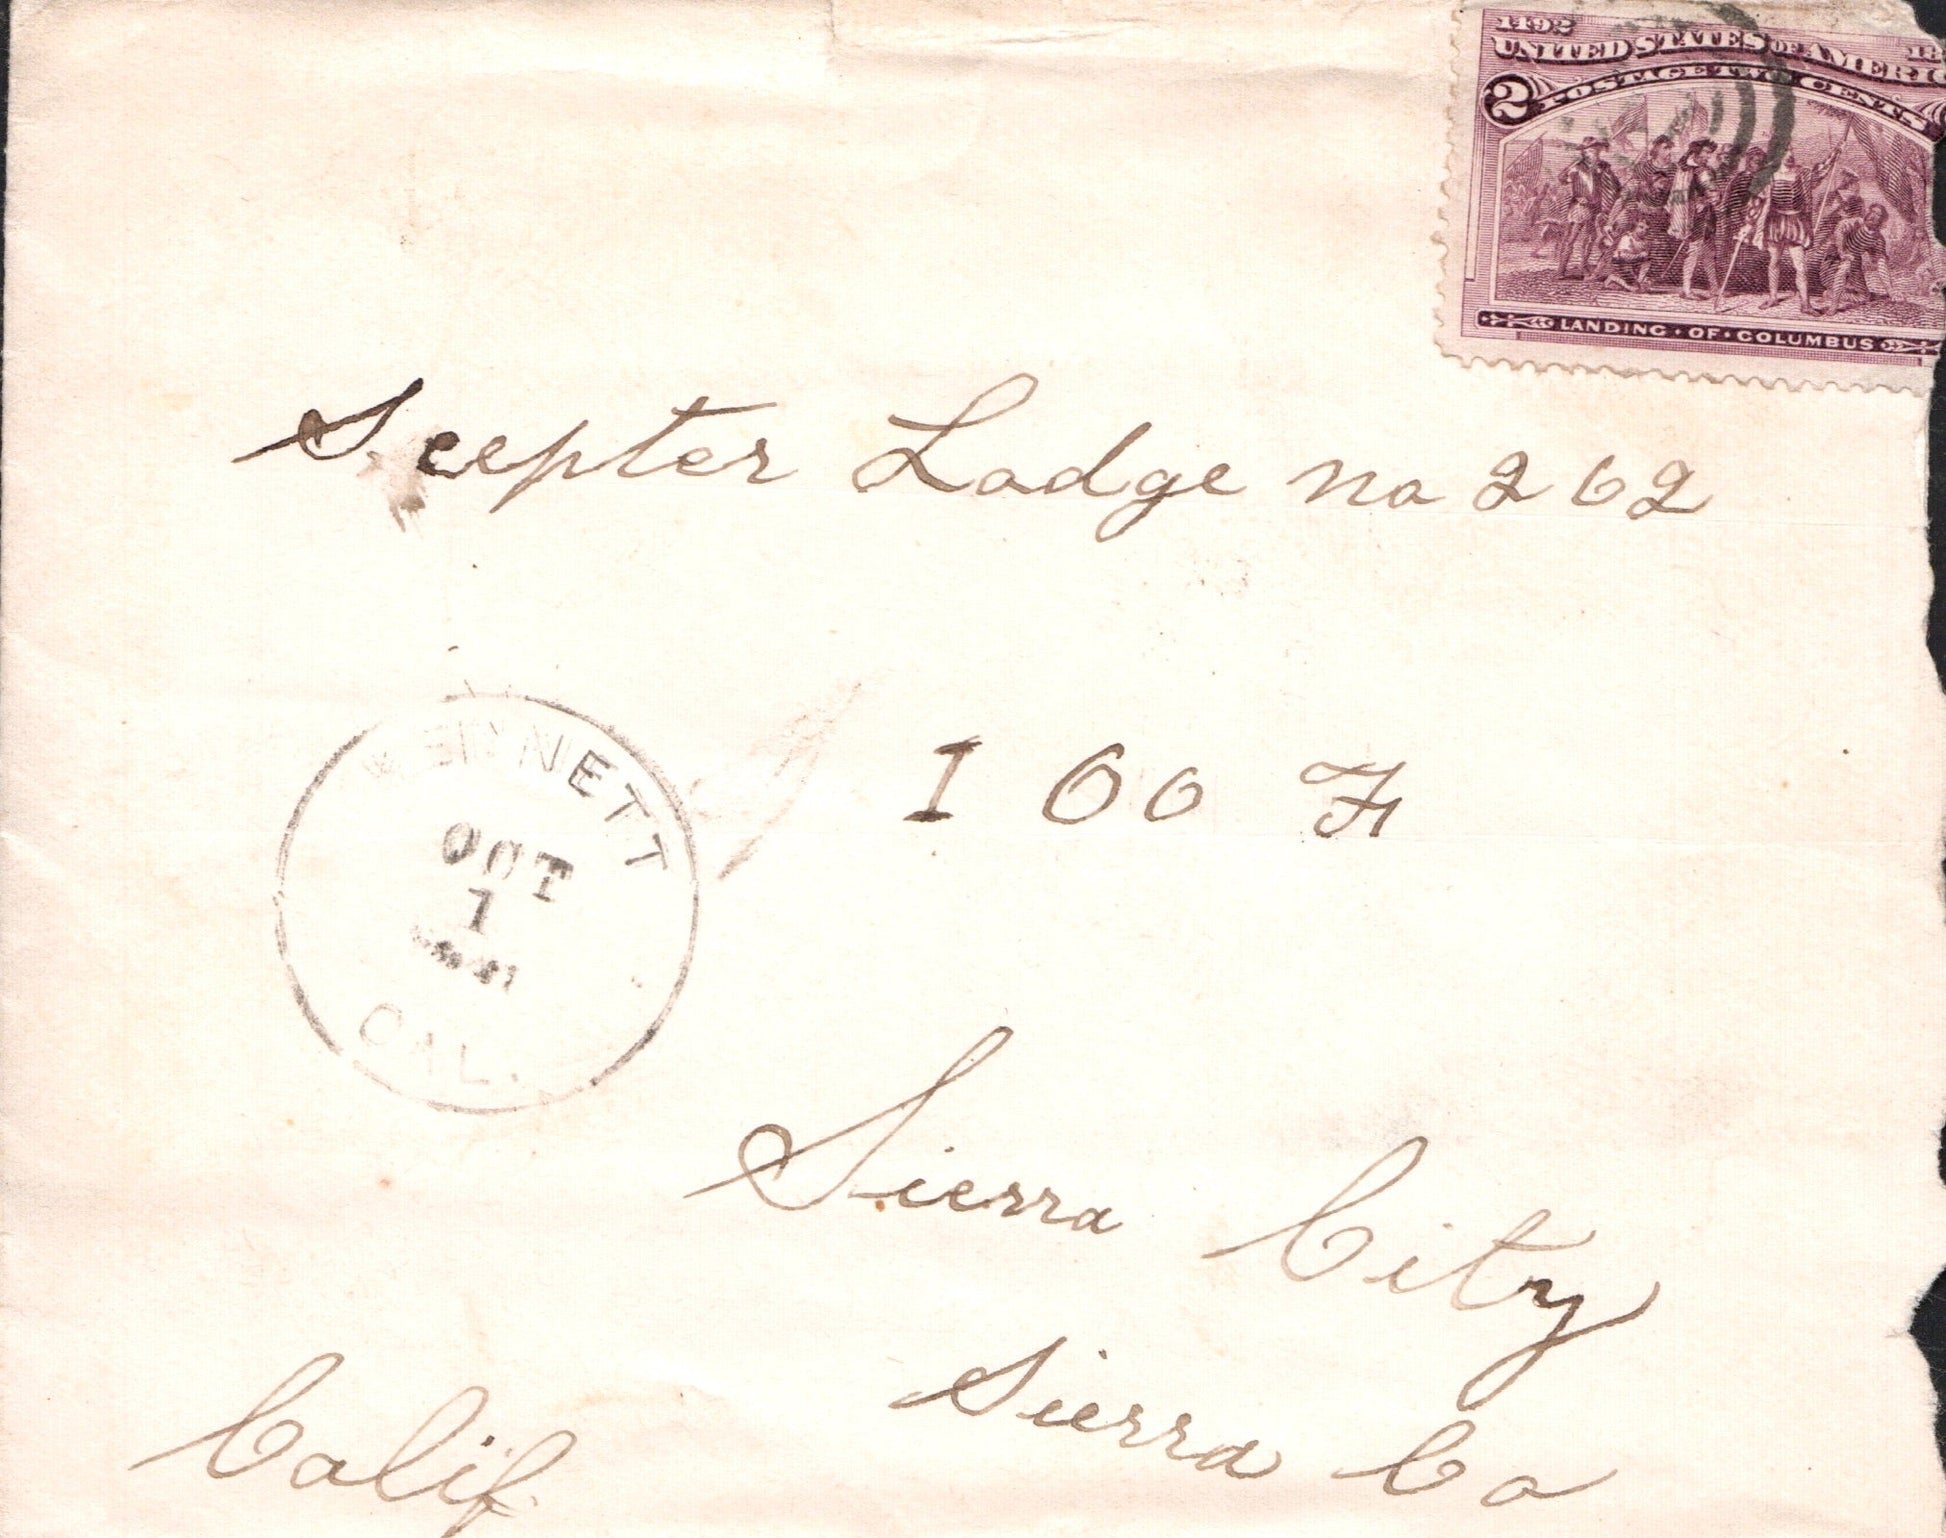 1492
UNITED STATES OF AMERIC
2 POSTAGE TWO CENTS
LANDING · OF · COLUMBUS
Scepter Lodge no 262
I OO F
OCT
1
CAL.
Sierra City
Sierra Co
Calif